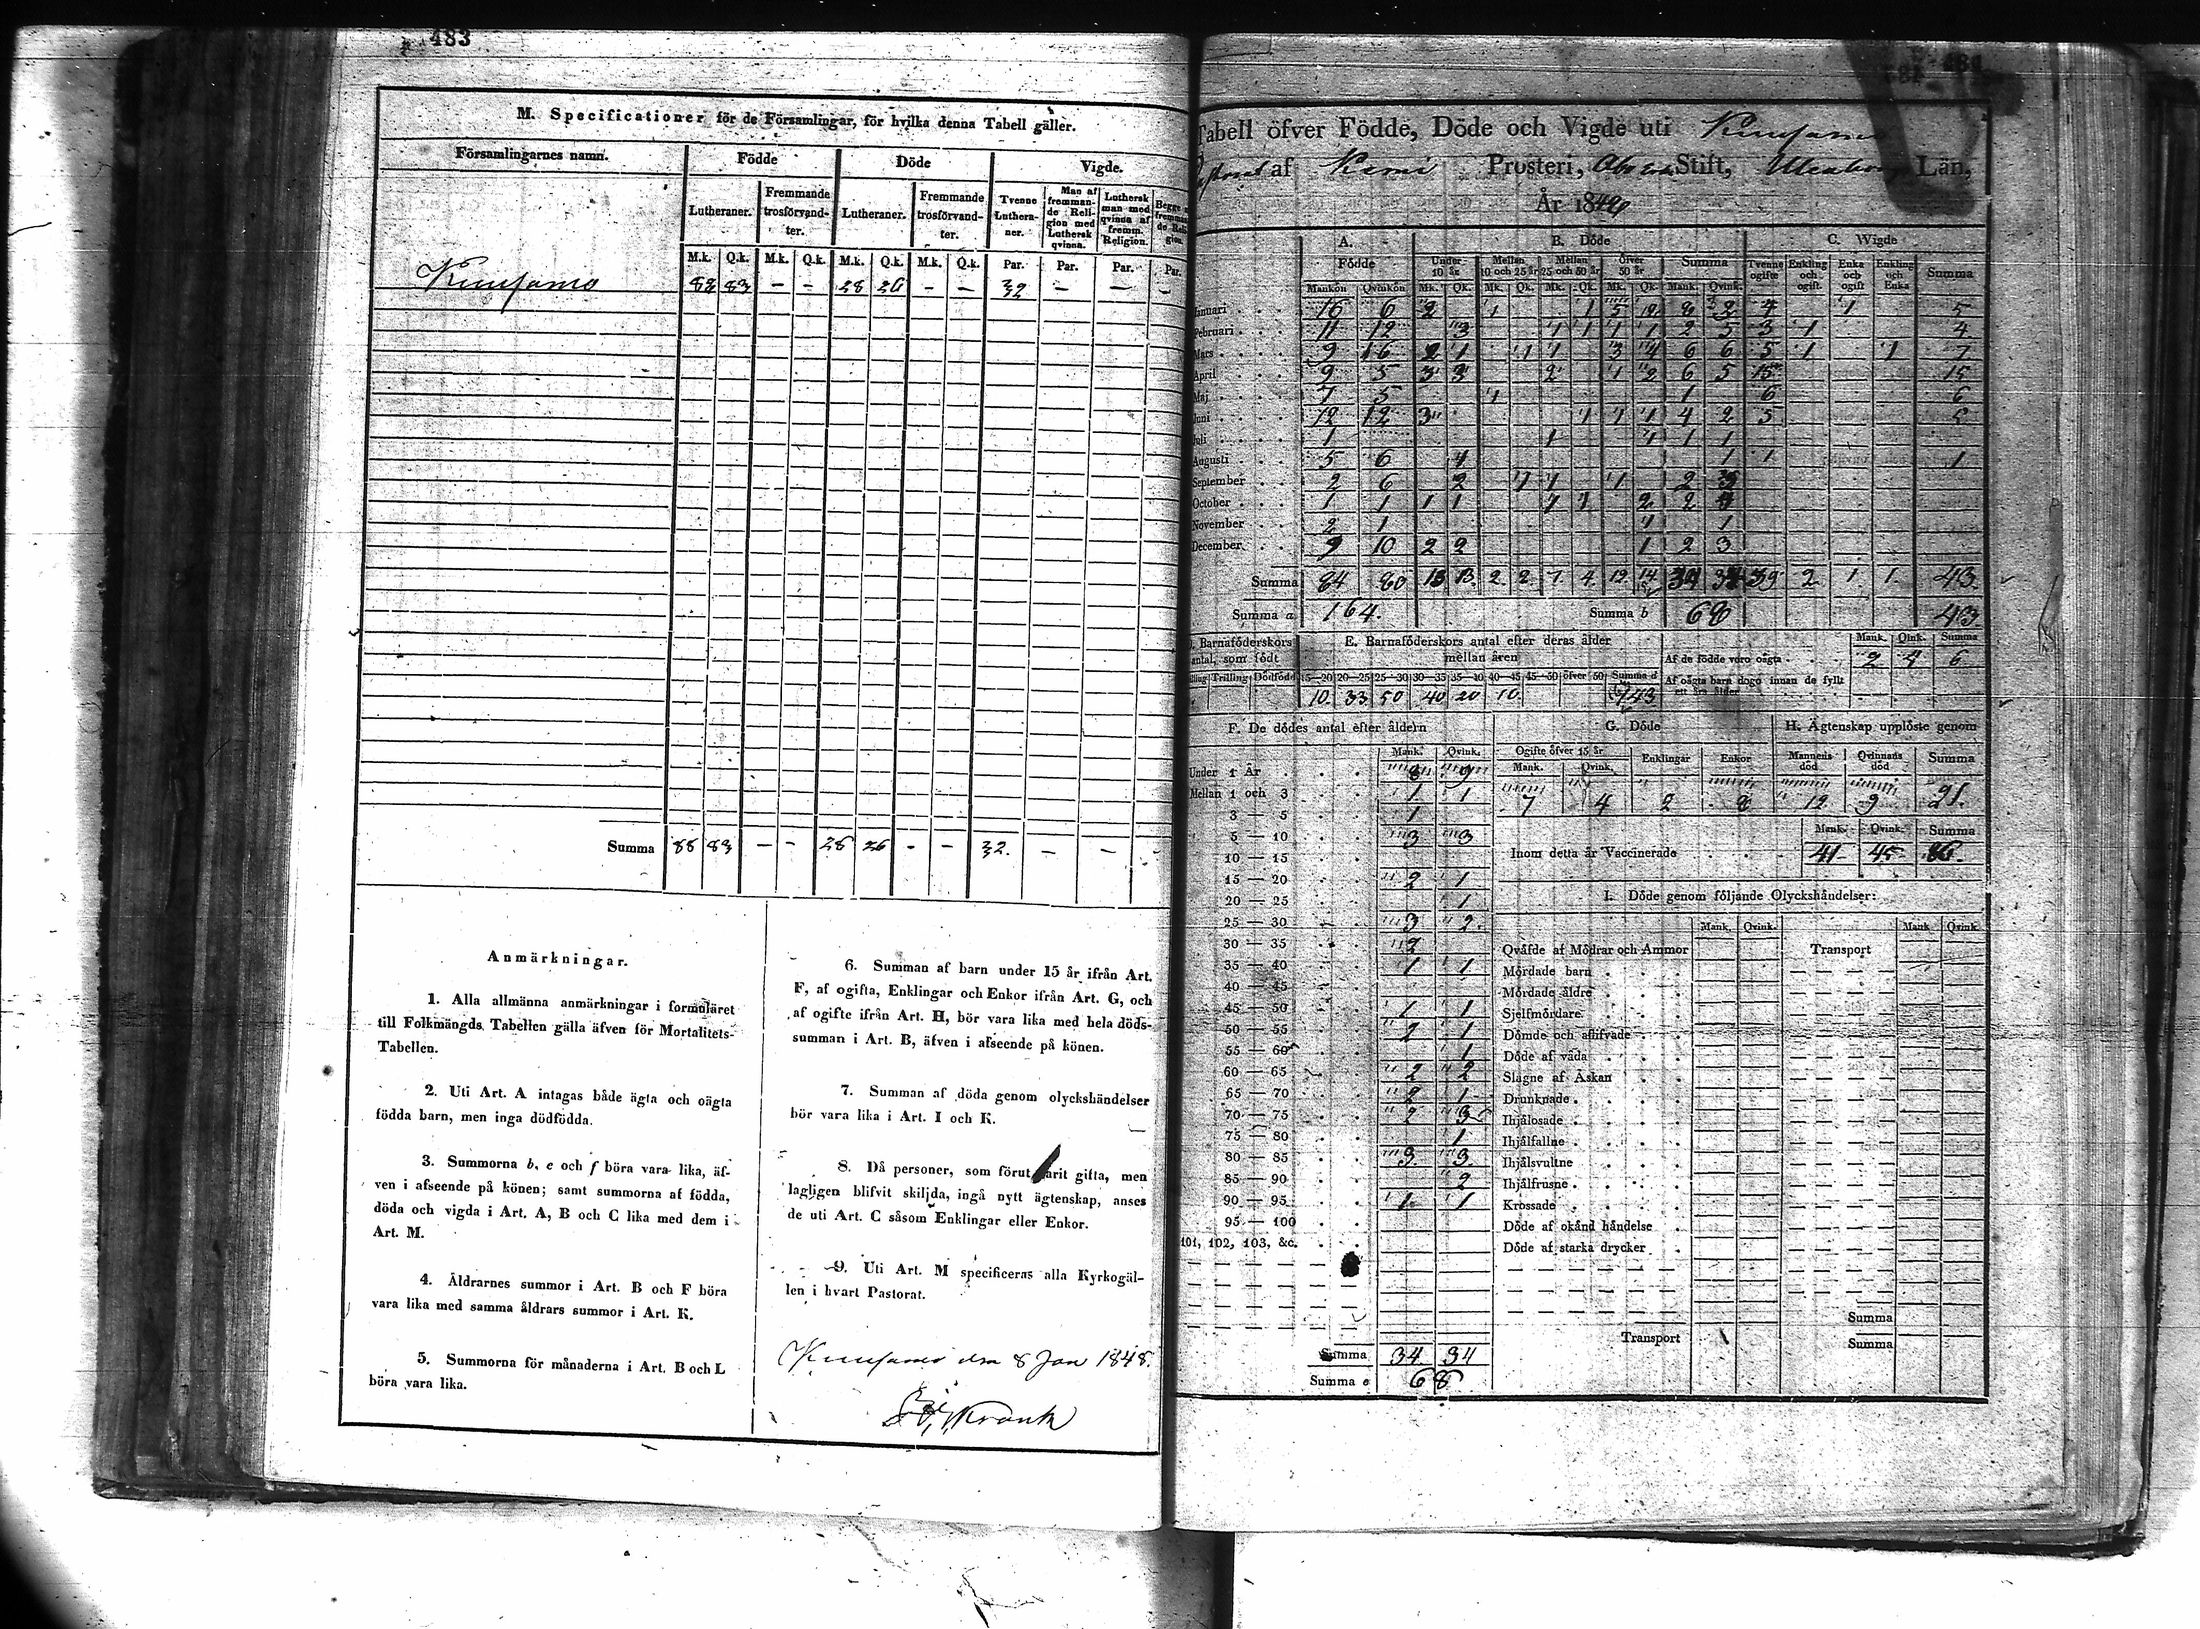 483
M. Specificationer för de Församlingar, för hvilka denna Tabell gäller.
Församlingarnes namn. Födde Döde Vigde.
Lutheraner. Fremmande trosförvandter. Lutheraner. Fremmande trosförvandter. Tvenne Lutheraner. Man af fremmande Religion med Luthersk qvinna. Luthersk man med qvinna af fremm. Religion.
M.k. Q.k. M.k. Q.k. M.k. Q.k. M.k. Q.k. Par. Par. Par. Par.
Kuusamo 88 83 — — 28 26 — — 32 — — —
Summa 88 83 — — 28 26 - - 32. — — -
Anmärkningar.
1. Alla allmänna anmärkningar i formuläret
till Folkmängds Tabellen gälla äfven för Mortalitets-
Tabellen.
2. Uti Art. A intagas både ägta och oägta
födda barn, men inga dödfödda.
3. Summorna b, e och f böra vara lika, äf-
ven i afseende på könen; samt summorna af födda,
döda och vigda i Art. A, B och C lika med dem i
Art. M.
4. Åldrarnes summor i Art. B och F böra
vara lika med samma åldrars summor i Art. K.
5. Summorna för månaderna i Art. B och L
böra vara lika.
6. Summan af barn under 15 år ifrån Art.
F, af ogifta, Enklingar och Enkor ifrån Art. G, och
af ogifte ifrån Art. H, bör vara lika med hela döds-
summan i Art. B, äfven i afseende på könen.
7. Summan af döda genom olyckshändelser
bör vara lika i Art. I och K.
8. Då personer, som förut varit gifta, men
lagligen blifvit skiljda, ingå nytt ägtenskap, anses
de uti Art. C såsom Enklingar eller Enkor.
9. Uti Art. M specificeras alla Kyrkogäl-
len i hvart Pastorat.
Kuusamo den 8 Jan 1848.
Tabell öfver Födde, Döde och Vigde uti Kuusamo
Pastorat af Kemi Prosteri, Stift, Uleåborgs Län,
År 184
A. B. Döde C. Wigde
Födde Under 10 år Mellan 10 och 25 år Mellan 25 och 50 år Öfver 50 år Summa Tvenne ogifte Enkling och ogift Enka och ogift Enkling och Enka Summa
Mankön Qvinkön Mk. Qk. Mk. Qk. Mk. Qk. Mk. Qk. Mank. Qvink.
Januari 16 6 2 1 1 5 2 8 2 4 1 5
Februari 11 12 3 1 1 1 1 2 5 3 1 4
Mars 9 16 2 1 1 1 3 4 6 6 5 1 1 7
April 9 5 3 3 2 1 2 6 5 15 15
Maj 7 5 1 1 6 6
Juni 12 12 3 1 1 1 4 2 5 5
Juli 1 1 1 1 1
Augusti 5 6 1 1 1
September 2 6 2 1 1 1 2 3
October 1 1 1 1 1 1 2 2 4
November 2 1 1 1
December 9 10 2 2 1 2 3
Summa 84 80 13 13 2 2 7 4 12 14 34 34 39 2 1 1 43
Summa a 164. Summa b 68 43
D. Barnaföderskors antal, som födt
Trilling Dödfödd
E. Barnaföderskors antal efter deras ålder mellan åren
15—20 20—25 25—30 30—35 35—40 40—45 45—50 öfver 50 Summa d
10 33 50 40 20 10
Mank. Qink. Summa
Af de födde voro oägta 2 4 6
Af oägta barn dogo innan de fyllt ett års ålder
F. De dödes antal efter åldern
Mank. Qvink.
Under 1 År 8 9
Mellan 1 och 3 1 1
3 — 5 1
5 — 10 3 3
10 — 15
15 — 20 2 1
20 — 25 1
25 — 30 3 2
30 — 35 2
35 — 40 1 1
40 — 45
45 — 50 1 1
50 — 55 2 1
55 — 60 1
60 — 65 2 2
65 — 70 2 1
70 — 75 2 3
75 — 80 1
80 — 85 3 3
85 — 90 2
90 — 95 1 1
95 — 100
101, 102, 103, &c.
Summa 34 34
Summa e 68
G. Döde
Ogifte öfver 15 år Enklingar Enkor
Mank. Qvink.
7 4 2 8
H. Ägtenskap upplöste genom
Mannens död Qvinnans död Summa
12 9 21.
Mank. Qvink. Summa
Inom detta år Vaccinerade 41 45 86.
I. Döde genom följande Olyckshändelser:
Mank. Qvink. Mank. Qvink.
Qväfde af Mödrar och Ammor Transport
Mördade barn
Mördade äldre
Sjelfmördare
Dömde och aflifvade
Döde af våda
Slagne af Åskan
Drunknade
Ihjälosade
Ihjälfallne
Ihjälsvultne
Ihjälfrusne
Krossade
Döde af okänd händelse
Döde af starka drycker
Summa
Transport Summa